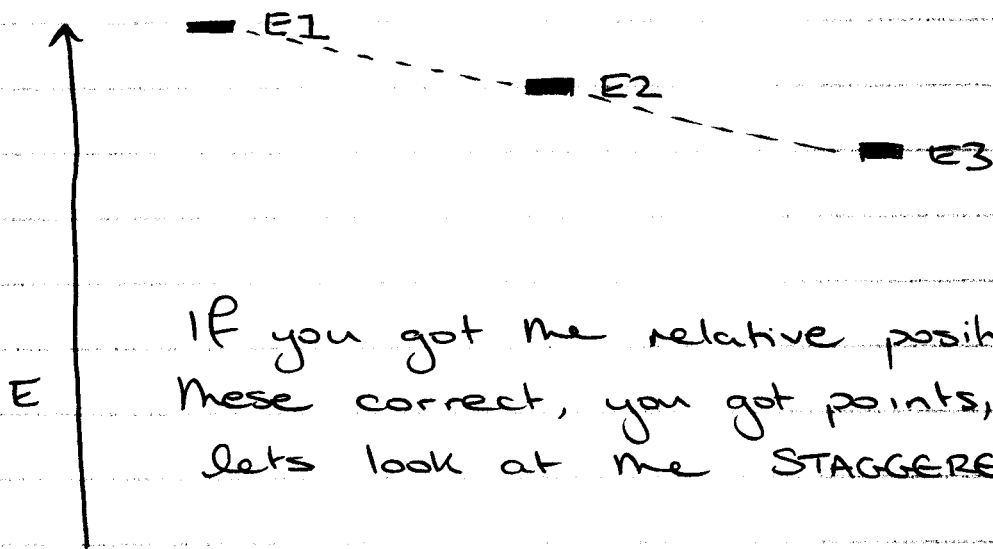 E1
E2
E3
If you got the relative posit
E
these correct, you got points,
lets look at the STAGGERE